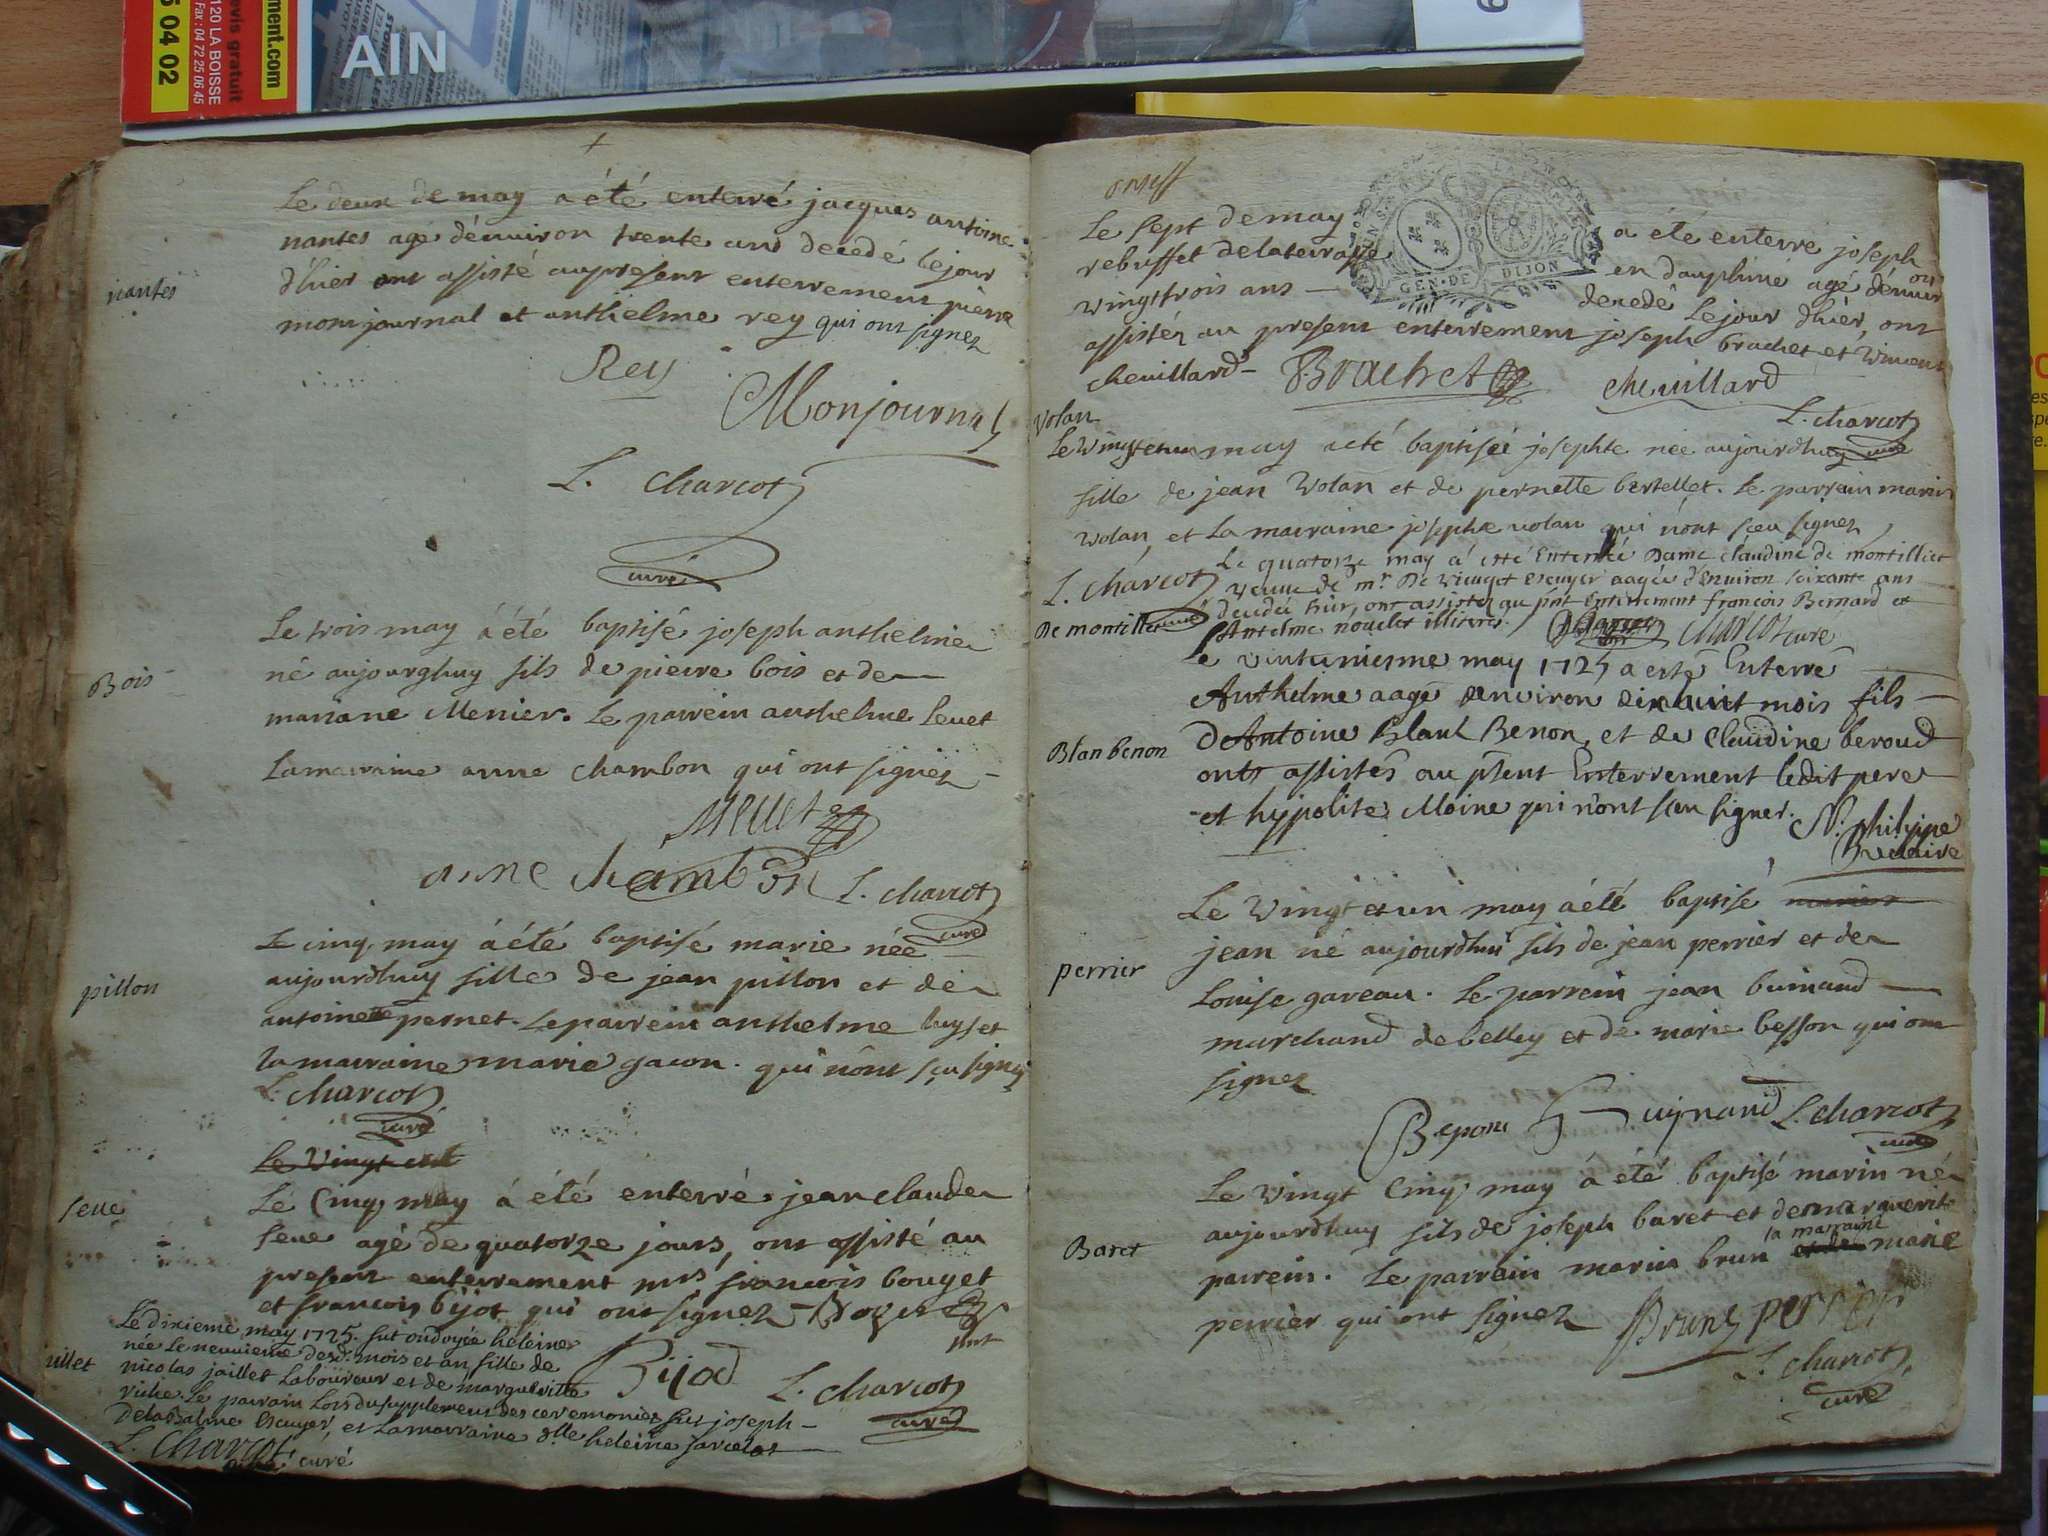 ment.com
devis gratuit
120 LA BOISSE
Fax : 04 72 25 06 45
5 04 02
AIN
9
Le deux de may a été enterré jacques antoine
nantes agé d'enuiron trente ans decedé le jour
d'hier ont assisté au present enterrement pierre
monjournal et anthelme rey qui ont signez
nantes
Rey
Monjournal
L. charcot
curé
Bois
Le trois may a été baptisé joseph anthelme
né aujourghuy fils de pierre bois et de
mariane Menier. Le parrein anthelme leuet
La marraine anne chambon qui ont signez
anne chambon
L. charcot
curé
pillon
Le cinq may a été baptisé marie née
aujourdhuy fille de jean pillon et de
antoinette pernet. Le parrein anthelme luysset
la marraine marie gacon. qui n'ont sçu signez
L. charcot
curé
Le Vingt et
seue
Le Cinq may a été enterré jean claude
seue agé de quatorze jours, ont assisté au
present enterrement mrs francois bouget
et francois bijot qui ont signez
Bijod
L. charcot
curé
uillet
Le dixieme may 1725. fut ondoyée heleine
née le neuuieme desd. mois et an fille de
nicolas jaillet Laboureur et de margueritte
riche. Le parrain Lors du supplement des ceremonies fut joseph
DelaBalme Escuyer, et La marraine dlle heleine sarcelot
L. Charcot curé
GEN·DE DIJON
Le sept de may a été enterre joseph
rebuffet de la terrasse en dauphiné agé d'enuiron
vingt trois ans decedé le jour d'hier, ont
assistéz au present enterrement joseph brachet et vincent
cheuillard
Brachet
cheuillard
L. charcot
curé
Volan
Le vingt et un may a eté baptiséé josephte née aujourdhuy
fille de jean Volan et de pernette bertellet. Le parrein marin
volan, et La marraine josephte uolan qui n'ont sceu signez
L. charcot
curé
De montillet
Le quatorze may a esté Enterréé Dame claudine de montilliet
veuue de mr. De vieuget escuyer aagée d'Enuiron soixante ans
decedée hier, ont assistez au pnt Enterrement francois Bernard et
Antelme nouelet illiteres.
charcot curé
Blanbenon
Le vintuniesme may 1725 a esté Enterré
Anthelme aagé denviron dixhuit mois fils
dAntoine Blanc Benon, et de Claudine beroud
onts assistés au pnt Enterrement ledit pere
et hyppolite Moine qui n'ont sceu signer.
N. philippe
Bvicaire
perrier
Le Vingt et un may a été baptisé
jean né aujourdhui fils de jean perrier et de
Louise gareau. Le parrein jean buinand
marchand de belley et de marie besson qui ont
signez
L. charcot
curé
Baret
Le vingt Cinq may a été baptisé marin né
aujourdhuy fils de joseph baret et de marguerite
parrein. Le parrein marin brun la marraine marie
perrier qui ont signez
Brun
perrier
L. charcot
curé